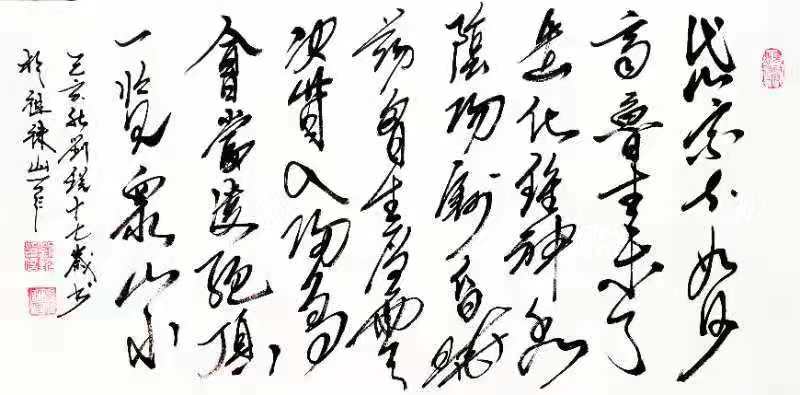 岱宗夫如何
齊魯青未了
造化鍾神秀
陰陽割昏曉
蕩胸生層雲
決眥入歸鳥
會當凌絕頂
一覽眾山小
己亥秋劉十七歲書
於祖徠山下